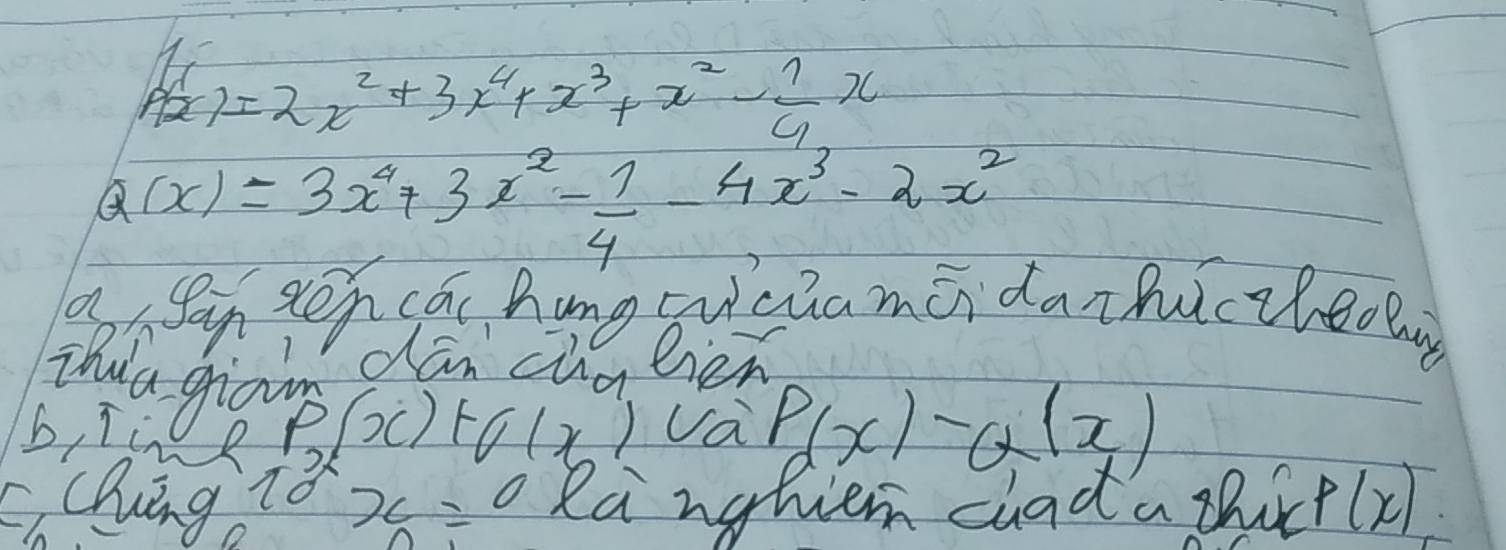 P(x) = 2x² + 3x⁴ + x³ + x² - 1/4 x
Q(x) = 3x⁴ + 3x² - 1/4 - 4x³ - 2x²
a, Sắp xếp các hạng tử của mỗi đa thức theo luỹ
thừa giảm dần của biến
b, Tính P(x) + Q(x) và P(x) - Q(x)
c, Chứng tỏ x = 0 là nghiệm của đa thức P(x).